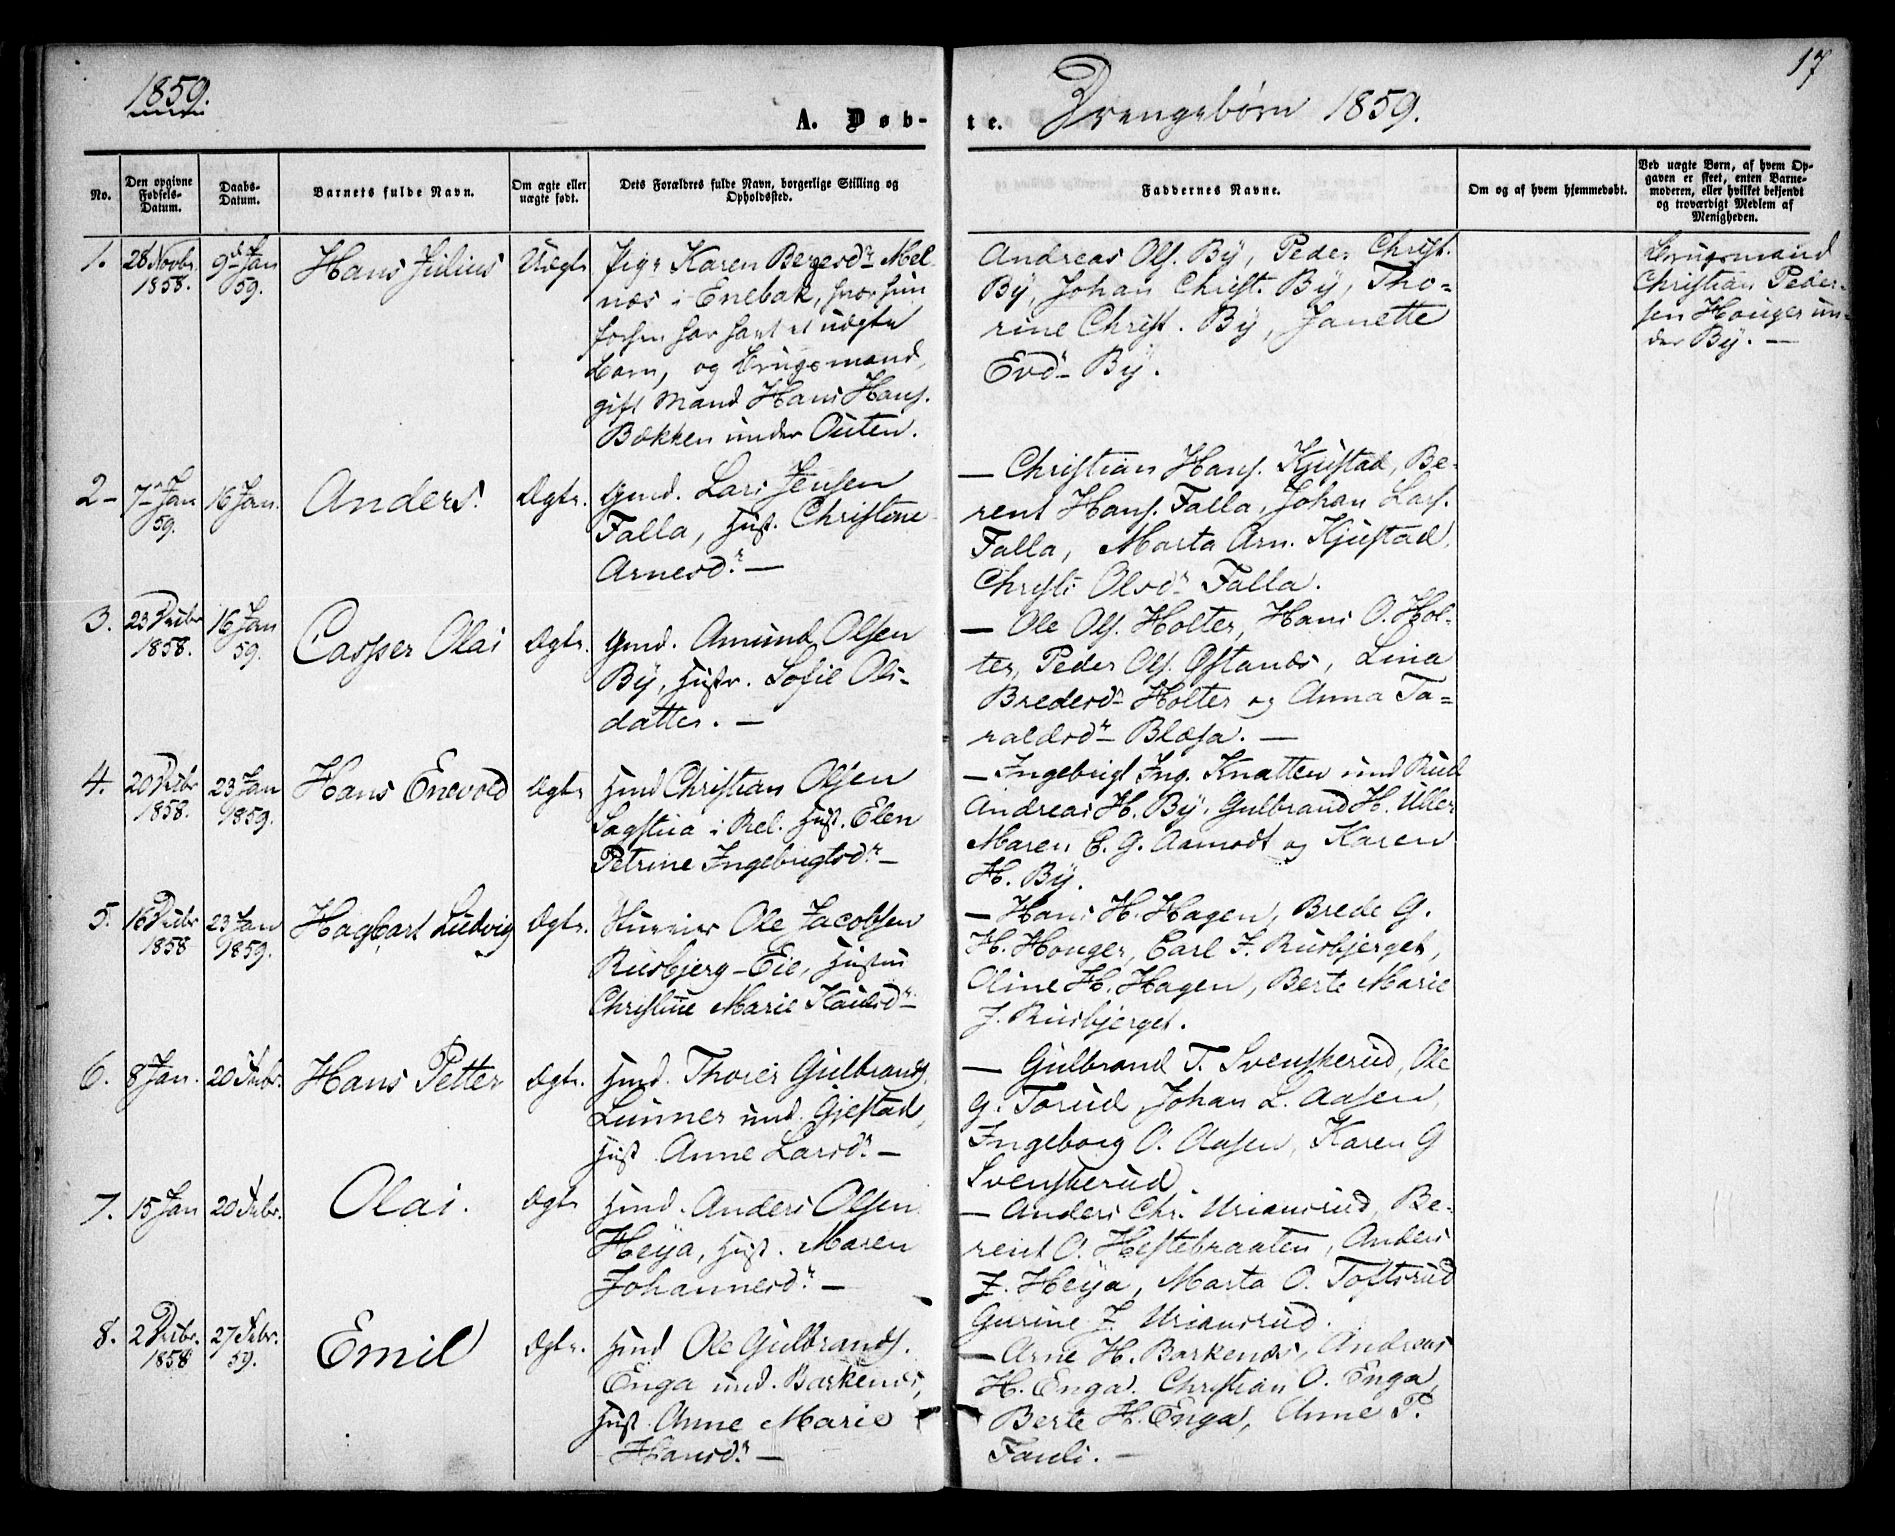 1859.
A. Døb-
te. Drengebørn 1859.
17
No.
Den opgivne Fødsels-Datum.
Daabs-Datum.
Barnets fulde Navn.
Om ægte eller uægte født.
Dets Forældres fulde Navn, borgerlige Stilling og Opholdssted.
Faddernes Navne.
Om og af hvem hjemmedøbt.
Ved uægte Børn, af hvem Opgaven er skeet, enten Barnemoderen, eller hvilket bekjendt og troværdigt Medlem af Menigheden.
1. 28 Novbr 1858. 9de Jan 59. Hans Julius Uægte
Pige Karen Bergesdr Mel-
næs i Enebak, hvor hun
forhen har havt et uægte
barn, og Brugsmand,
gift Mand Hans Hans.
Bækken under Outen.
Andreas Ols. By, Peder Christ.
By, Johan Christ. By, Tho-
rine Christ. By, Janette
Evd By.
Brugsmand
Christian Peder-
sen Houger un-
der By. —
2 - 7de Jan 59. 16 Jan. Anders. Ægte.
Gmd. Lars Jensen
Falla, Hust. Christine
Arnesdr. —
— Christian Hans. Kjustad, Be-
rent Hans. Falla, Johan Lars.
Falla, Marta Arn. Kjustad,
Christi Olsdr Falla.
3. 23 Decbr 1858. 16 Jan 59. Casper Olai Ægte.
Gmd. Amund Olsen
By, Hustr. Sofie Ols-
datter. —
— Ole Ols. Holter, Hans O. Hol-
ter, Peder Ols. Østanes, Lina
Bredesd Holter og Anna Ta-
raldsdr Blæsa. —
4. 20 Decbr 1858. 23 Jan 1859. Hans Enevold Ægte
Hmd Christian Olsen
Sagstua i Rel. Hust. Elen
Petrine Ingebrigtsdr. —
— Ingebrigt Ing. Knatten und Rud
Andreas H. By, Gulbrand H. Uller
Maren C. G. Aamodt og Karen
H. By.
5. 16 Decbr 1858 23 Jan 1859. Hagbart Ludvig Ægte.
Ole Jacobsen
Rusbjerg-Eie, Hustru
Christine Marie
— Hans H. Hagen, Brede G.
H. Houger, Carl J. Rusbjerget,
Oline H. Hagen, Berte Marie
J. Rusbjerget.
6. 8 Jan. 20 Febr. Hans Petter Ægte.
Hmd. Thorer Gulbrands.
Lunner und. Gjestad,
Hust. Anne Larsdr. —
— Gulbrand T. Svenskerud, Ole
G. Torud, Johan L. Aasen,
Ingeborg O. Aasen, Karen G
Svenskerud
7. 15 Jan 20 Febr. Olai. Ægte
Hmd. Anders Olsen
Heya, Hust. Maren
Johannesdr. —
— Anders Chr. Uriansrud, Be-
rent O. Hestebraaten, Anders
J. Heya, Marta O. Toftsrud
Gurine J. Uriansrud.
8. 2 Decbr. 1858 27 Febr. 59. Emil Ægte.
Hmd Ole Gulbrands.
Enga und. Barkenes,
Hust. Anne Marie
Hansdr. —
— Arne H. Barkenes, Andreas
H. Enga. Christian O. Enga,
Berte H. Enga, Anne P.
Fauli. —